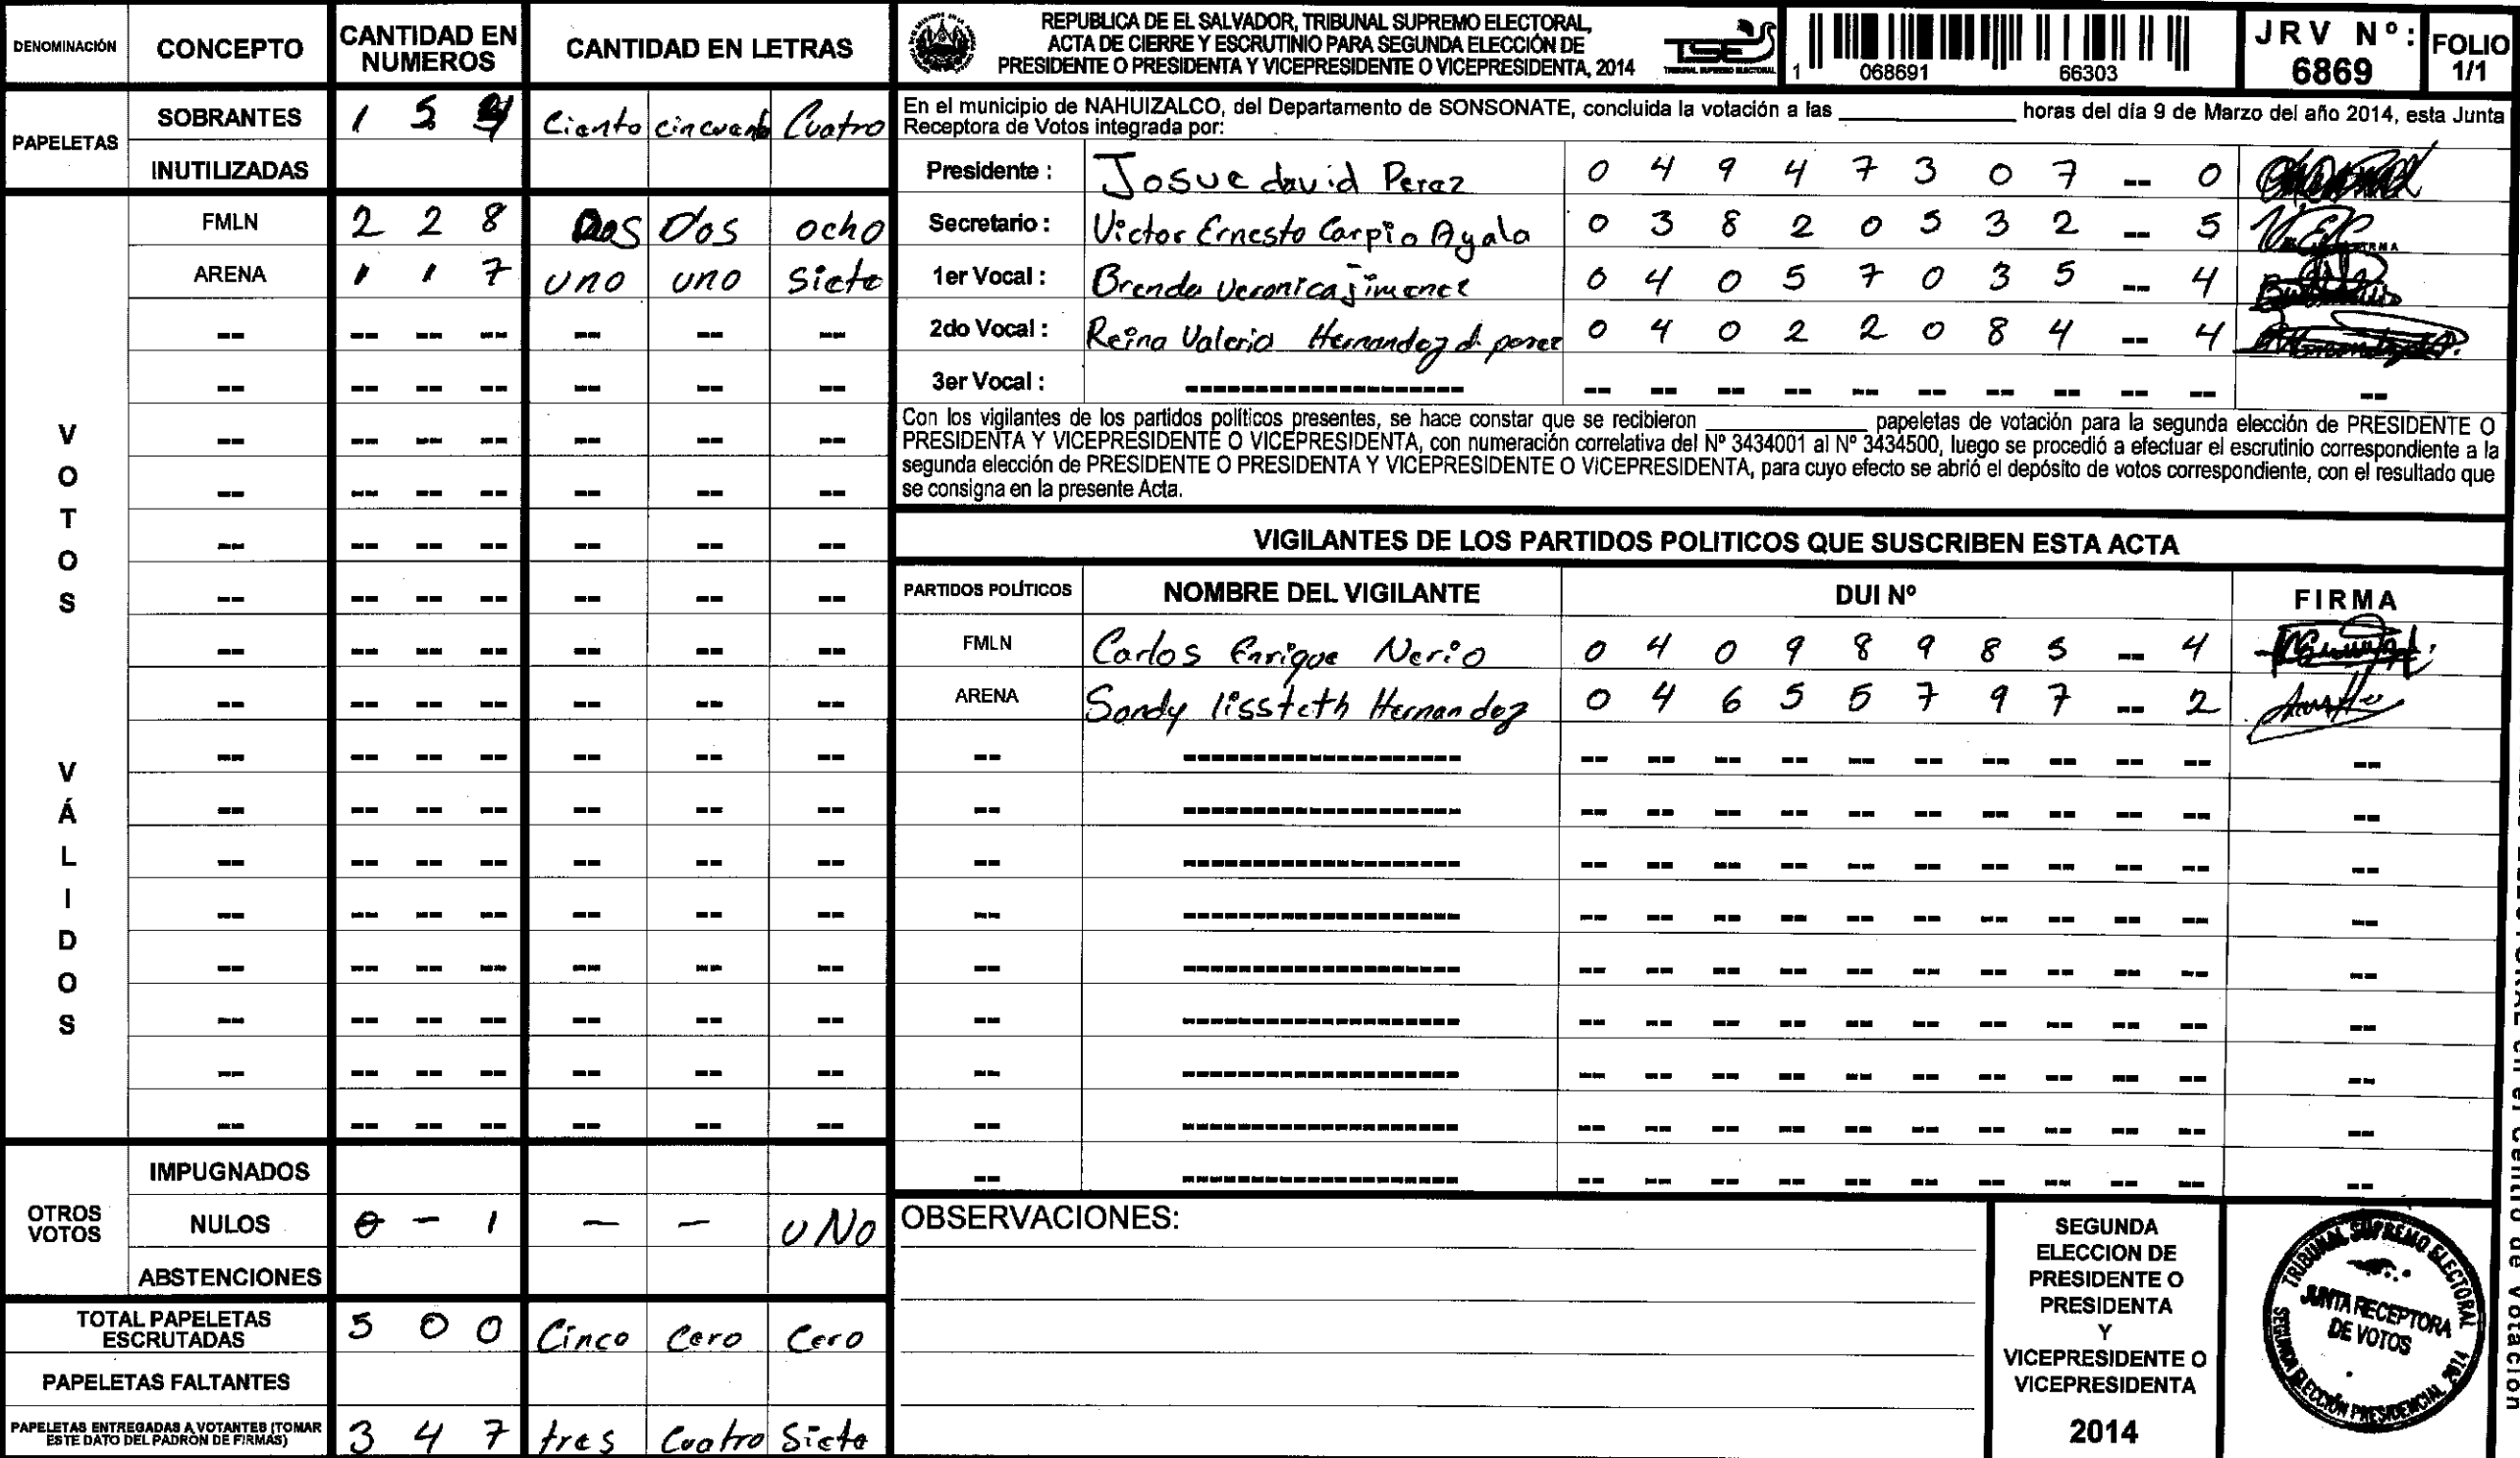 DENOMINACIÓN CONCEPTO CANTIDAD EN NUMEROS CANTIDAD EN LETRAS
PAPELETAS
SOBRANTES 1 5 4 Ciento cincuenta Cuatro
INUTILIZADAS
VOTOS VÁLIDOS
FMLN 2 2 8 Dos Dos ocho
ARENA 1 1 7 uno uno siete
OTROS VOTOS
IMPUGNADOS
NULOS 0 - 1 - - uNo
ABSTENCIONES
TOTAL PAPELETAS ESCRUTADAS 5 0 0 Cinco Cero Cero
PAPELETAS FALTANTES
PAPELETAS ENTREGADAS A VOTANTES (TOMAR ESTE DATO DEL PADRON DE FIRMAS) 3 4 7 tres Cuatro Siete
REPUBLICA DE EL SALVADOR, TRIBUNAL SUPREMO ELECTORAL,
ACTA DE CIERRE Y ESCRUTINIO PARA SEGUNDA ELECCIÓN DE
PRESIDENTE O PRESIDENTA Y VICEPRESIDENTE O VICEPRESIDENTA, 2014
TSE
TRIBUNAL SUPREMO ELECTORAL
1 068691 66303
JRV Nº: 6869
FOLIO 1/1
En el municipio de NAHUIZALCO, del Departamento de SONSONATE, concluida la votación a las ____ horas del día 9 de Marzo del año 2014, esta Junta
Receptora de Votos integrada por:
Presidente : Josue david Perez 0 4 9 4 7 3 0 7 -- 0
Secretario : Victor Ernesto Carpio Ayala 0 3 8 2 0 5 3 2 -- 5
1er Vocal : Brenda Veronica Jimenez 0 4 0 5 7 0 3 5 -- 4
2do Vocal : Reina Valeria Hernandez d perez 0 4 0 2 2 0 8 4 -- 4
3er Vocal :
Con los vigilantes de los partidos políticos presentes, se hace constar que se recibieron ____ papeletas de votación para la segunda elección de PRESIDENTE O
PRESIDENTA Y VICEPRESIDENTE O VICEPRESIDENTA, con numeración correlativa del Nº 3434001 al Nº 3434500, luego se procedió a efectuar el escrutinio correspondiente a la
segunda elección de PRESIDENTE O PRESIDENTA Y VICEPRESIDENTE O VICEPRESIDENTA, para cuyo efecto se abrió el depósito de votos correspondiente, con el resultado que
se consigna en la presente Acta.
VIGILANTES DE LOS PARTIDOS POLITICOS QUE SUSCRIBEN ESTA ACTA
PARTIDOS POLÍTICOS NOMBRE DEL VIGILANTE DUI Nº FIRMA
FMLN Carlos Enrique Nerio 0 4 0 9 8 9 8 5 -- 4
ARENA Sandy lissteth Hernandez 0 4 6 5 5 7 9 7 -- 2
OBSERVACIONES:
SEGUNDA
ELECCION DE
PRESIDENTE O
PRESIDENTA
Y
VICEPRESIDENTE O
VICEPRESIDENTA
2014
TRIBUNAL SUPREMO ELECTORAL
JUNTA RECEPTORA
DE VOTOS
SEGUNDA ELECCIÓN PRESIDENCIAL 2014
ELECTORAL en el Centro de Votación